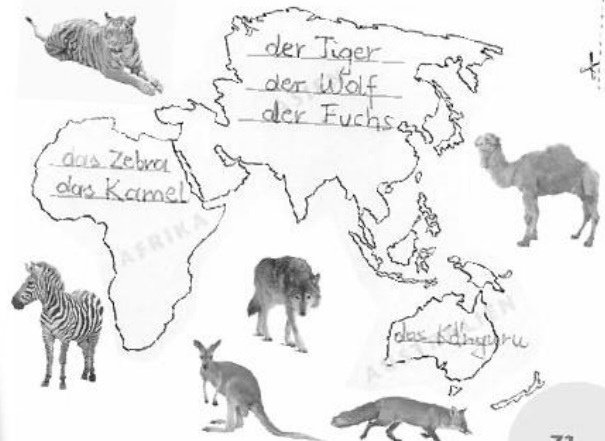 der Tiger
der Wolf
der Fuchs
das Zebra
das Kamel
AFRIKA
das Känguru
AUSTRALIEN